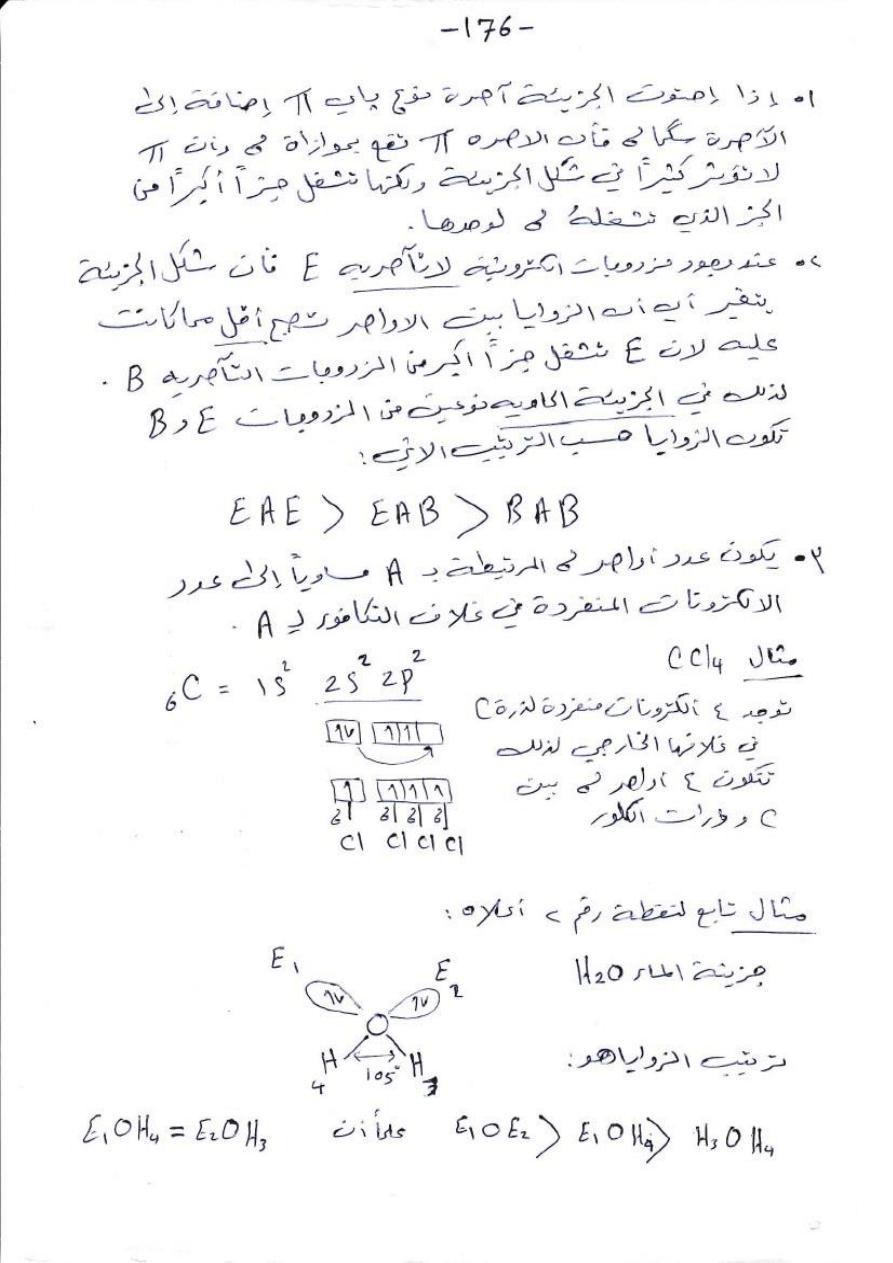 -176-
١. إذا إحتوت الجزيئة آصرة نوع باي π إضافة إلى
الآصرة سگما σ فأن الاصره π تقع بموازاة σ وأن π
لا تؤثر كثيراً في شكل الجزيئة ولكنها تشغل حيزاً أكبراً من
الحيز الذي تشغلهُ σ لوحدها.
٢. عند وجود مزدوجات الكترونية لاتآصريه E فأن شكل الجزيئة
يتغير أي أن الزوايا بين الاواصر تصبح أقل مما كانت
عليه لان E تشغل حيزاً أكبر من المزدوجات التآصريه B.
لذلك في الجزيئة الحاويه نوعين من المزدوجات E و B
تكون الزوايا حسب الترتيب الاتي:
EAE > EAB > BAB
٣. يكون عدد أواصر σ المرتبطة بـ A مساوياً إلى عدد
الالكترونات المنفردة في غلاف التكافؤ لـ A.
مثال CCl4
₆C = 1S² 2S² 2P²
توجد ٤ ألكترونات منفردة لذرة C
في غلافها الخارجي لذلك
تتكون ٤ أواصر σ بين
C وذرات الكلور
Cl Cl Cl Cl
مثال تابع لنقطة رقم ٢ أعلاه:
جزيئة الماء H2O
E₁ E₂
O
H₄ 105° H₃
ترتيب الزوايا هو:
E₁OE₂ > E₁OH₄ > H₃OH₄ علماً أن E₁OH₄ = E₂OH₃